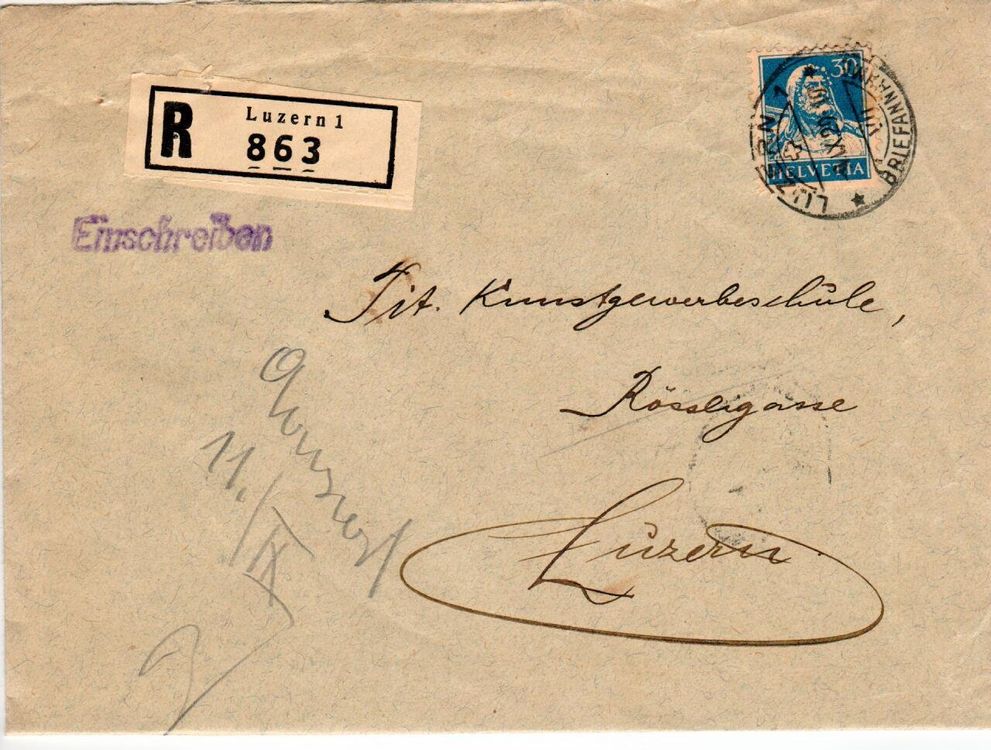 R
Luzern 1
863
30
HELVETIA
LUZERN 1
BRIEFANNAHME
Einschreiben
Tit. Kunstgewerbeschule,
Rössligasse
Luzern
11./IX